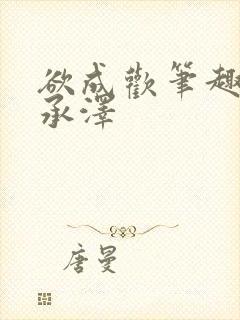 欲成歡筆趣
承澤
唐曼